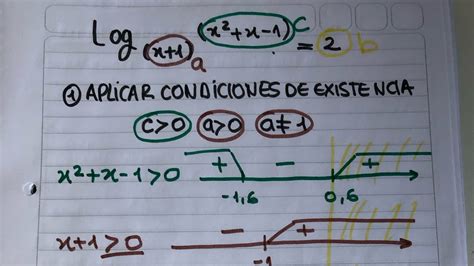 Log (x+1) (x²+x-1) = 2
c
a
b
① APLICAR CONDICIONES DE EXISTENCIA
c>0 a>0 a≠1
x²+x-1>0 + - +
-1,6 0,6
x+1>0 - +
-1